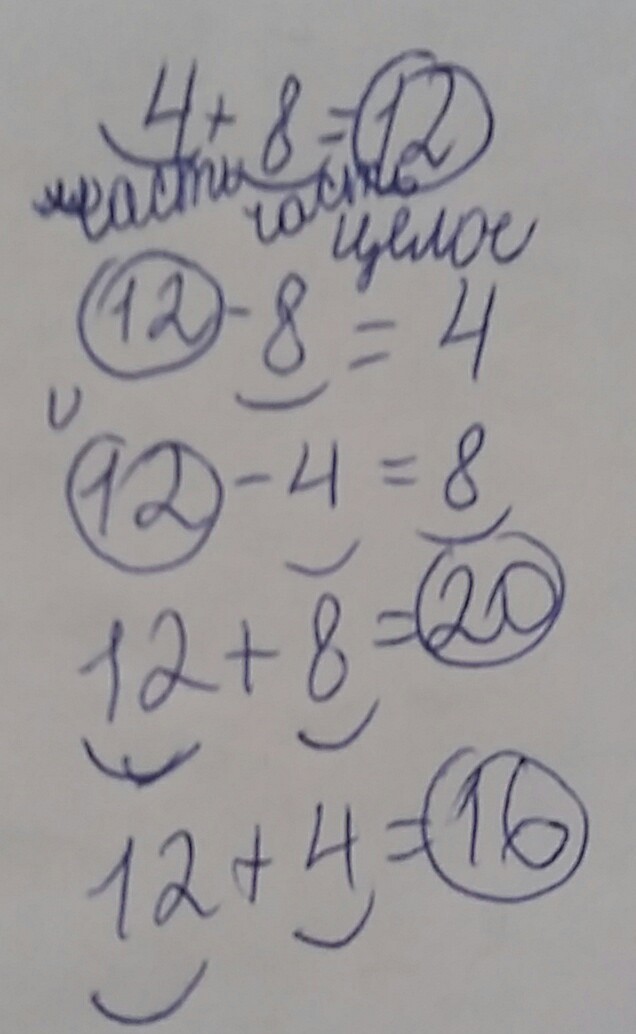 4+8=12
часть часть
целое
12-8=4
12-4=8
12+8=20
12+4=16